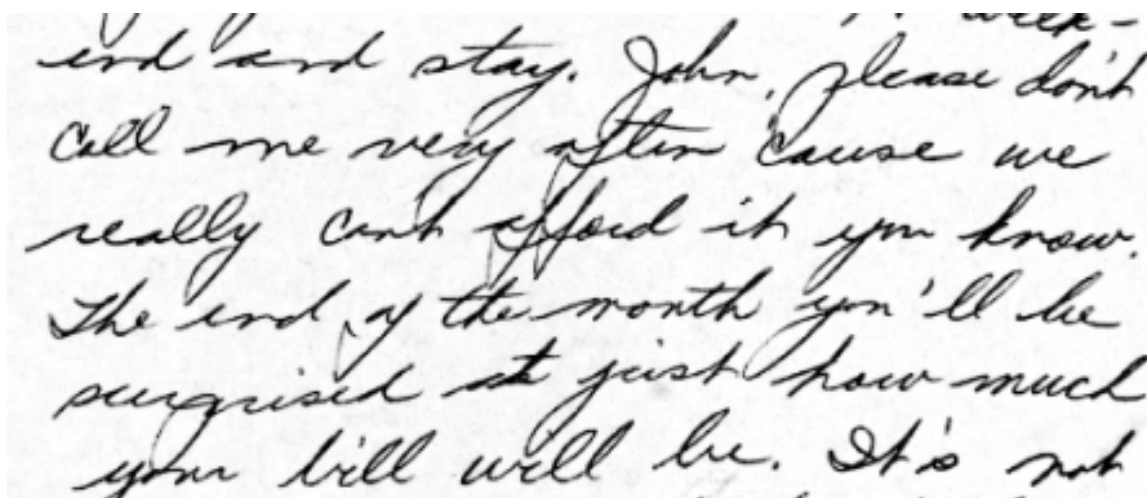 week-
end and stay. John, please don't
call me very often 'cause we
really can't afford it you know.
The end of the month you'll be
surprised at just how much
your bill will be. It's not